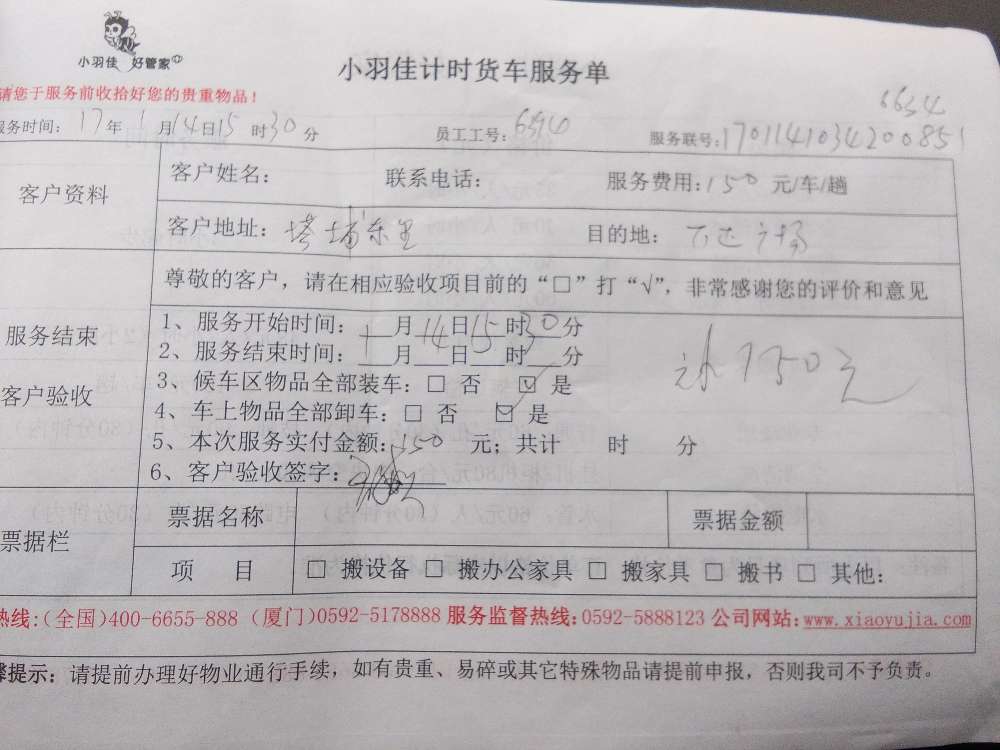 小羽佳 好管家
小羽佳计时货车服务单
请您于服务前收拾好您的贵重物品！
6634
服务时间：17年1月14日15时30分 员工工号：6394 服务联号：170114103420085
客户资料
客户姓名： 联系电话： 服务费用：150元/车/趟
客户地址：塔埔东里 目的地：
尊敬的客户，请在相应验收项目前的“□”打“√”，非常感谢您的评价和意见
服务结束
客户验收
1、服务开始时间：1月14日15时30分
2、服务结束时间：月日时分
3、候车区物品全部装车：□ 否 ☑ 是
4、车土物品全部卸车：□ 否 ☑ 是
5、本次服务实付金额：150元；共计 时 分
6、客户验收签字：
150元
票据栏
票据名称 票据金额
项 目 □ 搬设备 □ 搬办公家具 □ 搬家具 □ 搬书 □ 其他：
热线：(全国)400-6655-888 (厦门)0592-5178888 服务监督热线：0592-5888123 公司网站：www.xiaoyujia.com
馨提示：请提前办理好物业通行手续，如有贵重、易碎或其它特殊物品请提前申报，否则我司不予负责。